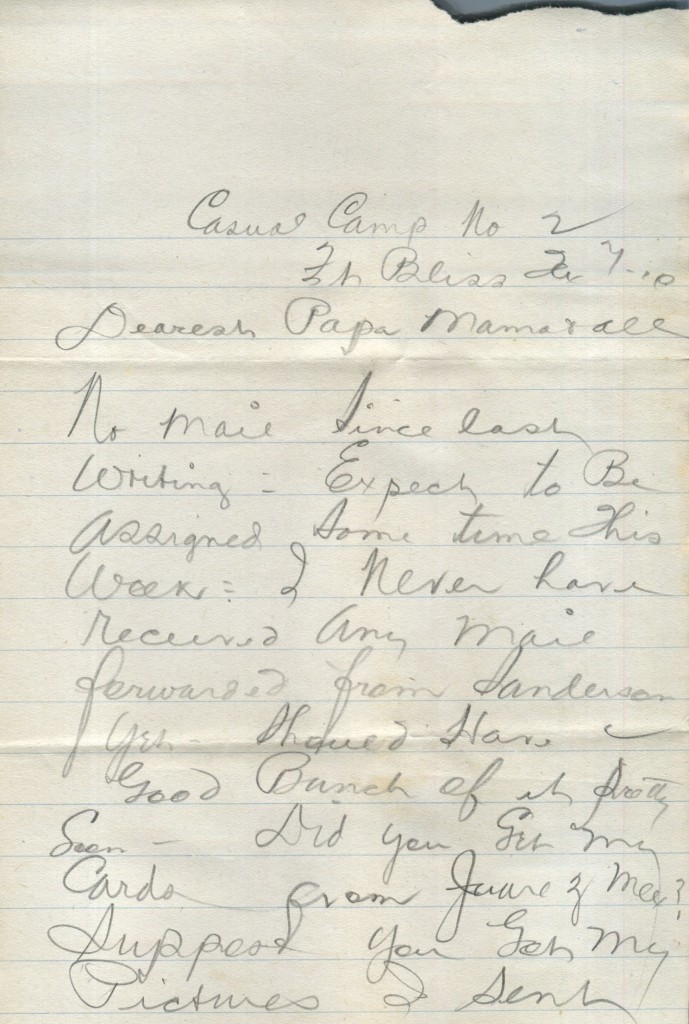 Casual Camp No 2
Ft Bliss
Dearest Papa Mama & all
No mail Since last
Writing = Expect to Be
Assigned Some time This
Week = I Never have
Received Any Mail
forwarded from Sanderson
Yet - Should Have a
Good Bunch of it pretty
Soon - Did you Get my
Cards from Juarez Mex?
Suppose you Got My
Pictures I Sent